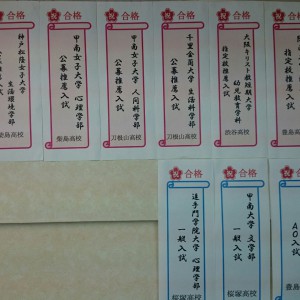 祝 合格
指定校推薦入試
豊島高校
祝 合格
大阪キリスト教短期大学
幼児教育学科
指定校推薦入試
渋谷高校
祝 合格
千里金蘭大学 生活科学部
公募推薦入試
刀根山高校
祝 合格
甲南女子大学 人間科学部
公募推薦入試
刀根山高校
祝 合格
甲南女子大学 心理学部
公募推薦入試
柴島高校
祝 合格
生活環境学部
公募推薦入試
柴島高校
祝 合格
AO入試
豊島
祝 合格
甲南大学 文学部
一般入試
桜塚高校
祝 合格
追手門学院大学 心理学部
一般入試
桜塚高校